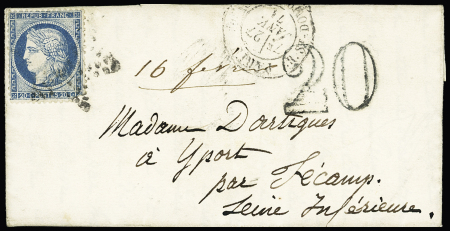 REPUB. FRANC.
20
16 fév
20 C POSTES 20 C
Madame Dartigues
à Yport
par Fécamp.
Seine Inférieure.